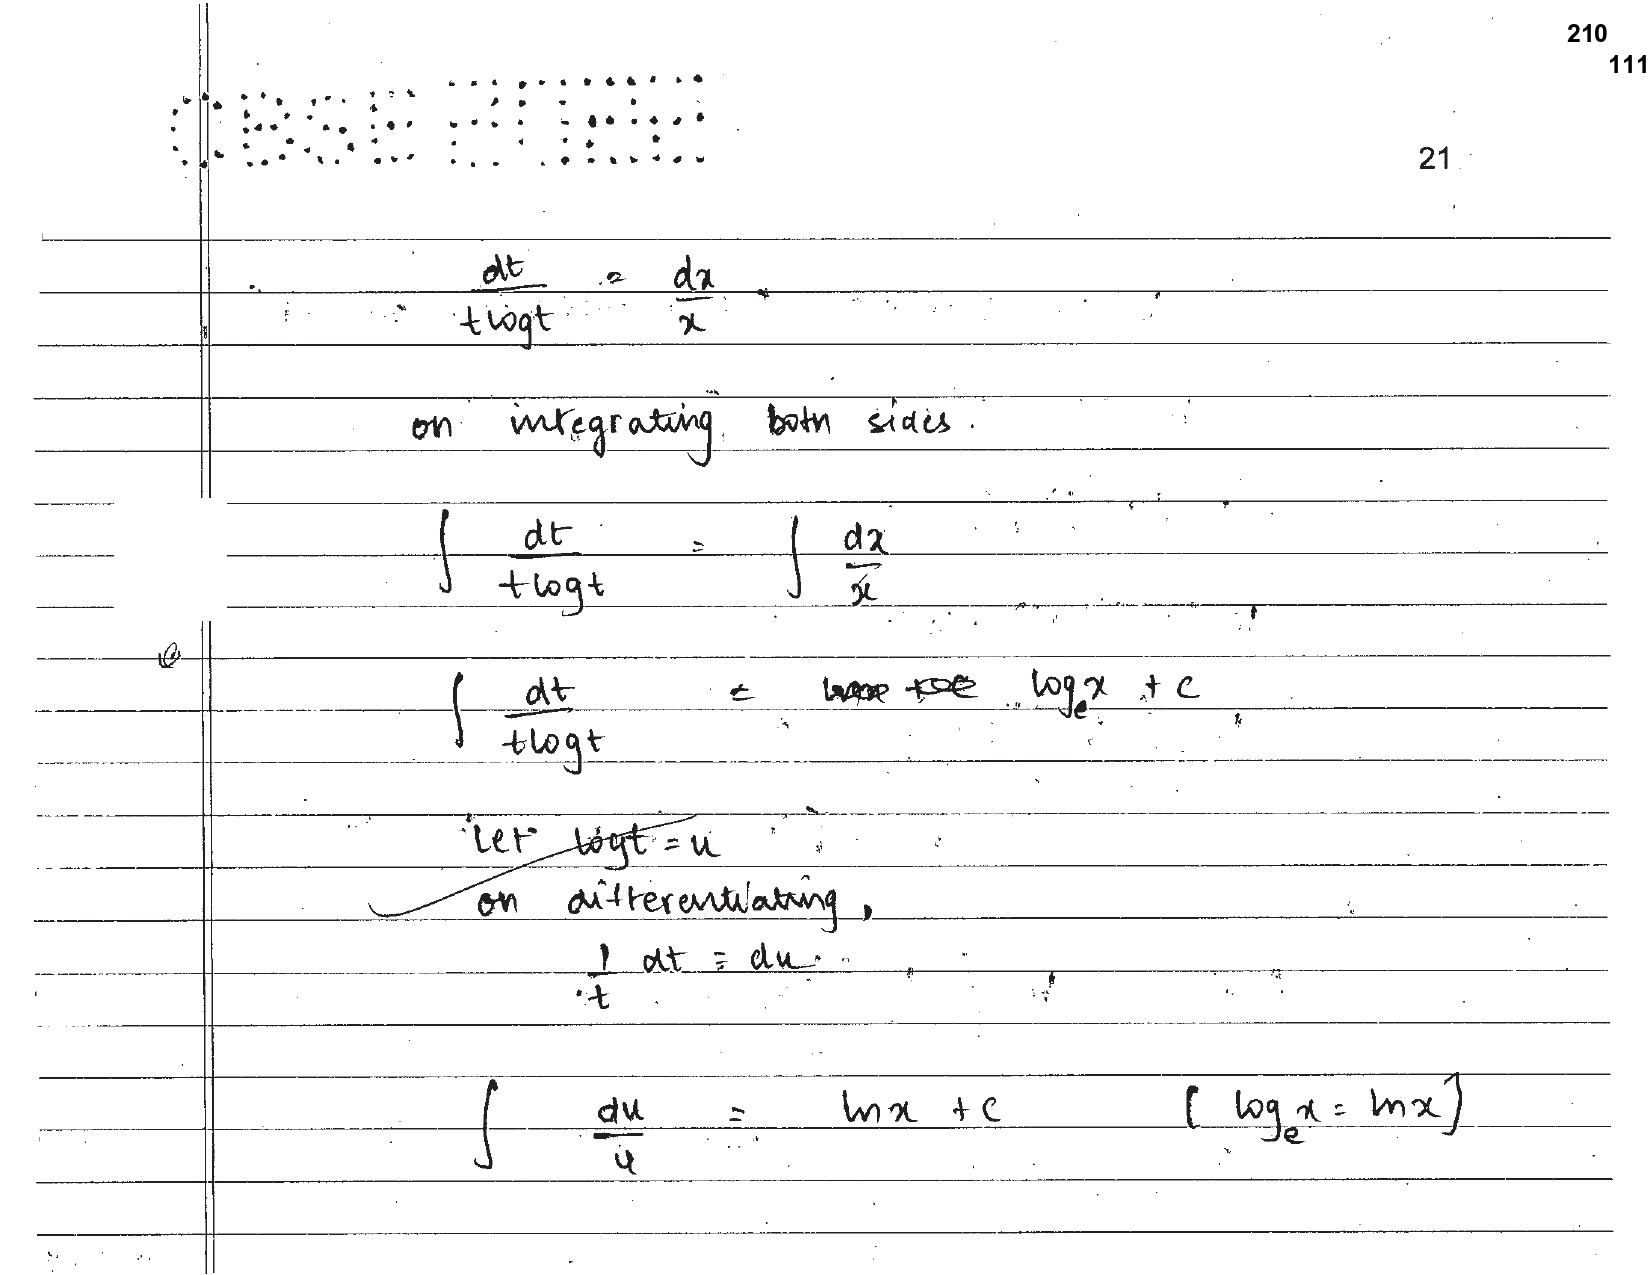 210
111
CBSE
21
dt/(t log t) = dx/x
on integrating both sides.
∫ dt/(t log t) = ∫ dx/x
∫ dt/(t log t) = logₑx + c
Let logt = u
on differentiating,
1/t dt = du
∫ du/u = lnx + c [logₑx = lnx]